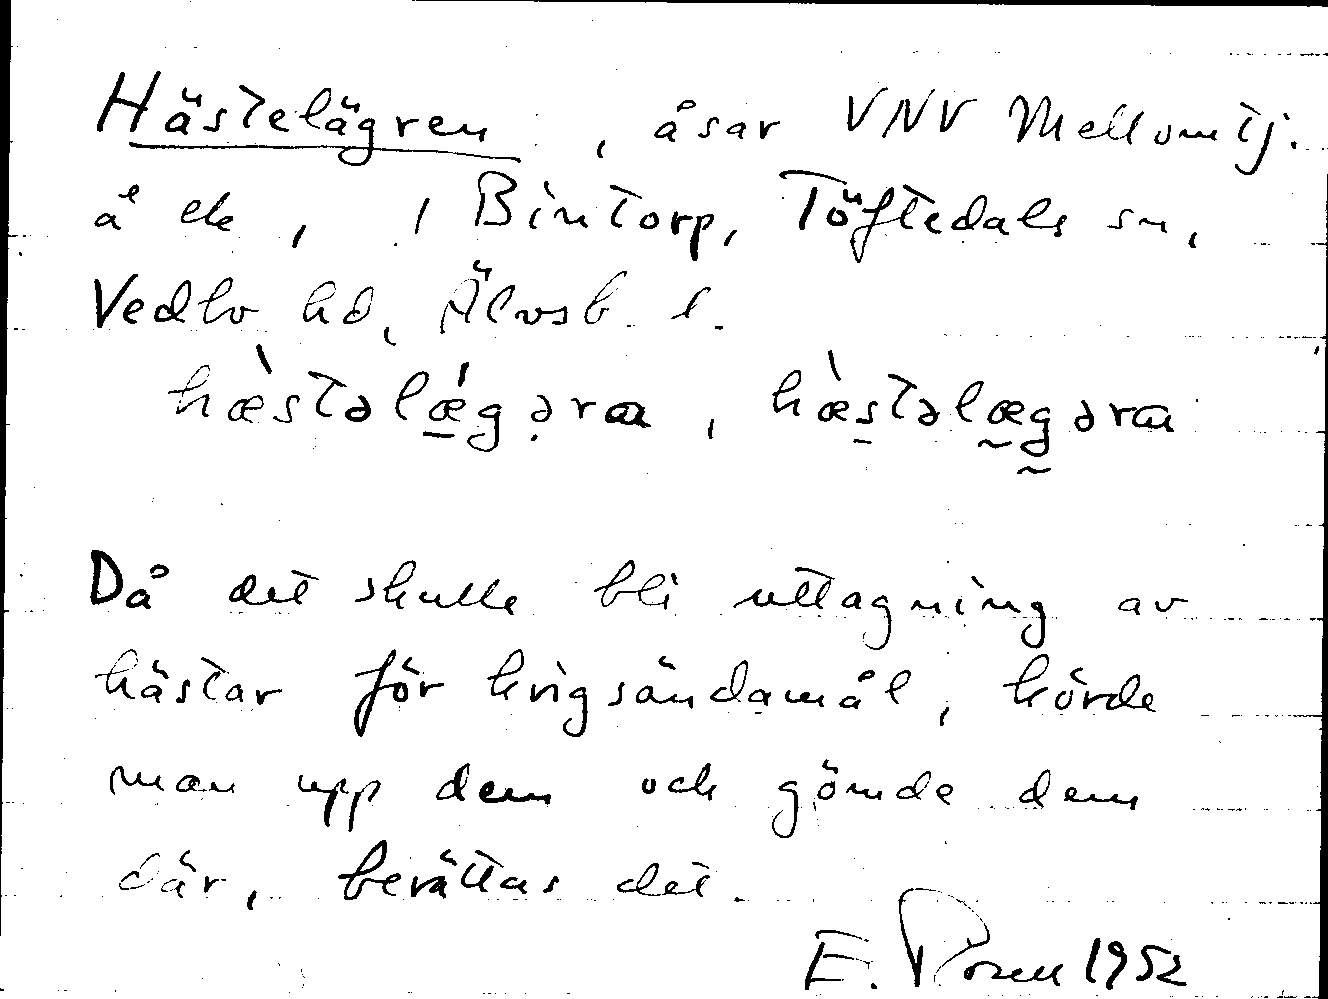 Hästelägren, åsar VNV Mellomtj.
å ek, i Bintorp, Töftedals sn,
Vedbo hd, Älvsb. l.
hæ̀stəlǽgərɑ, hæ̀stəlægərɑ
Då det skulle bli uttagning av
hästar för krigsändamål, körde
man upp dem och gömde dem
där, berättas det.
E. Rosell 1952